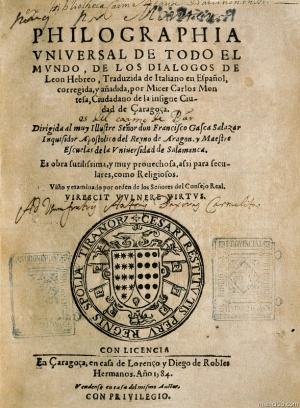 PHILOGRAPHIA
VNIVERSAL DE TODO EL
MVNDO, DE LOS DIALOGOS DE
Leon Hebreo, Traduzida de Italiano en Español,
corregida, y añadida, por Micer Carlos Mon
tesa, Ciudadano de la insigne Ciu-
dad de Çaragoça.
es del
Dirigida al muy Illustre Señor don Francisco Gasca Salazar
Inquisidor Apostolico del Reyno de Aragon, y Maestre
Escuelas de la Vniuersidad de Salamanca.
Es obra sutilissima, y muy prouechosa, assi para secu-
lares, como Religiosos.
Visto y examinado por orden de los Señores del Consejo Real.
VIRESCIT VVLNERE VIRTVS.
CAESARI RESTITVTIS PERV REGNIS SPOLIA TIRANOR
CON LICENCIA
En Çaragoça, en casa de Lorenço y Diego de Robles
Hermanos. Año 1584.
Vendense en casa del mismo Auctor,
CON PRIVILEGIO.